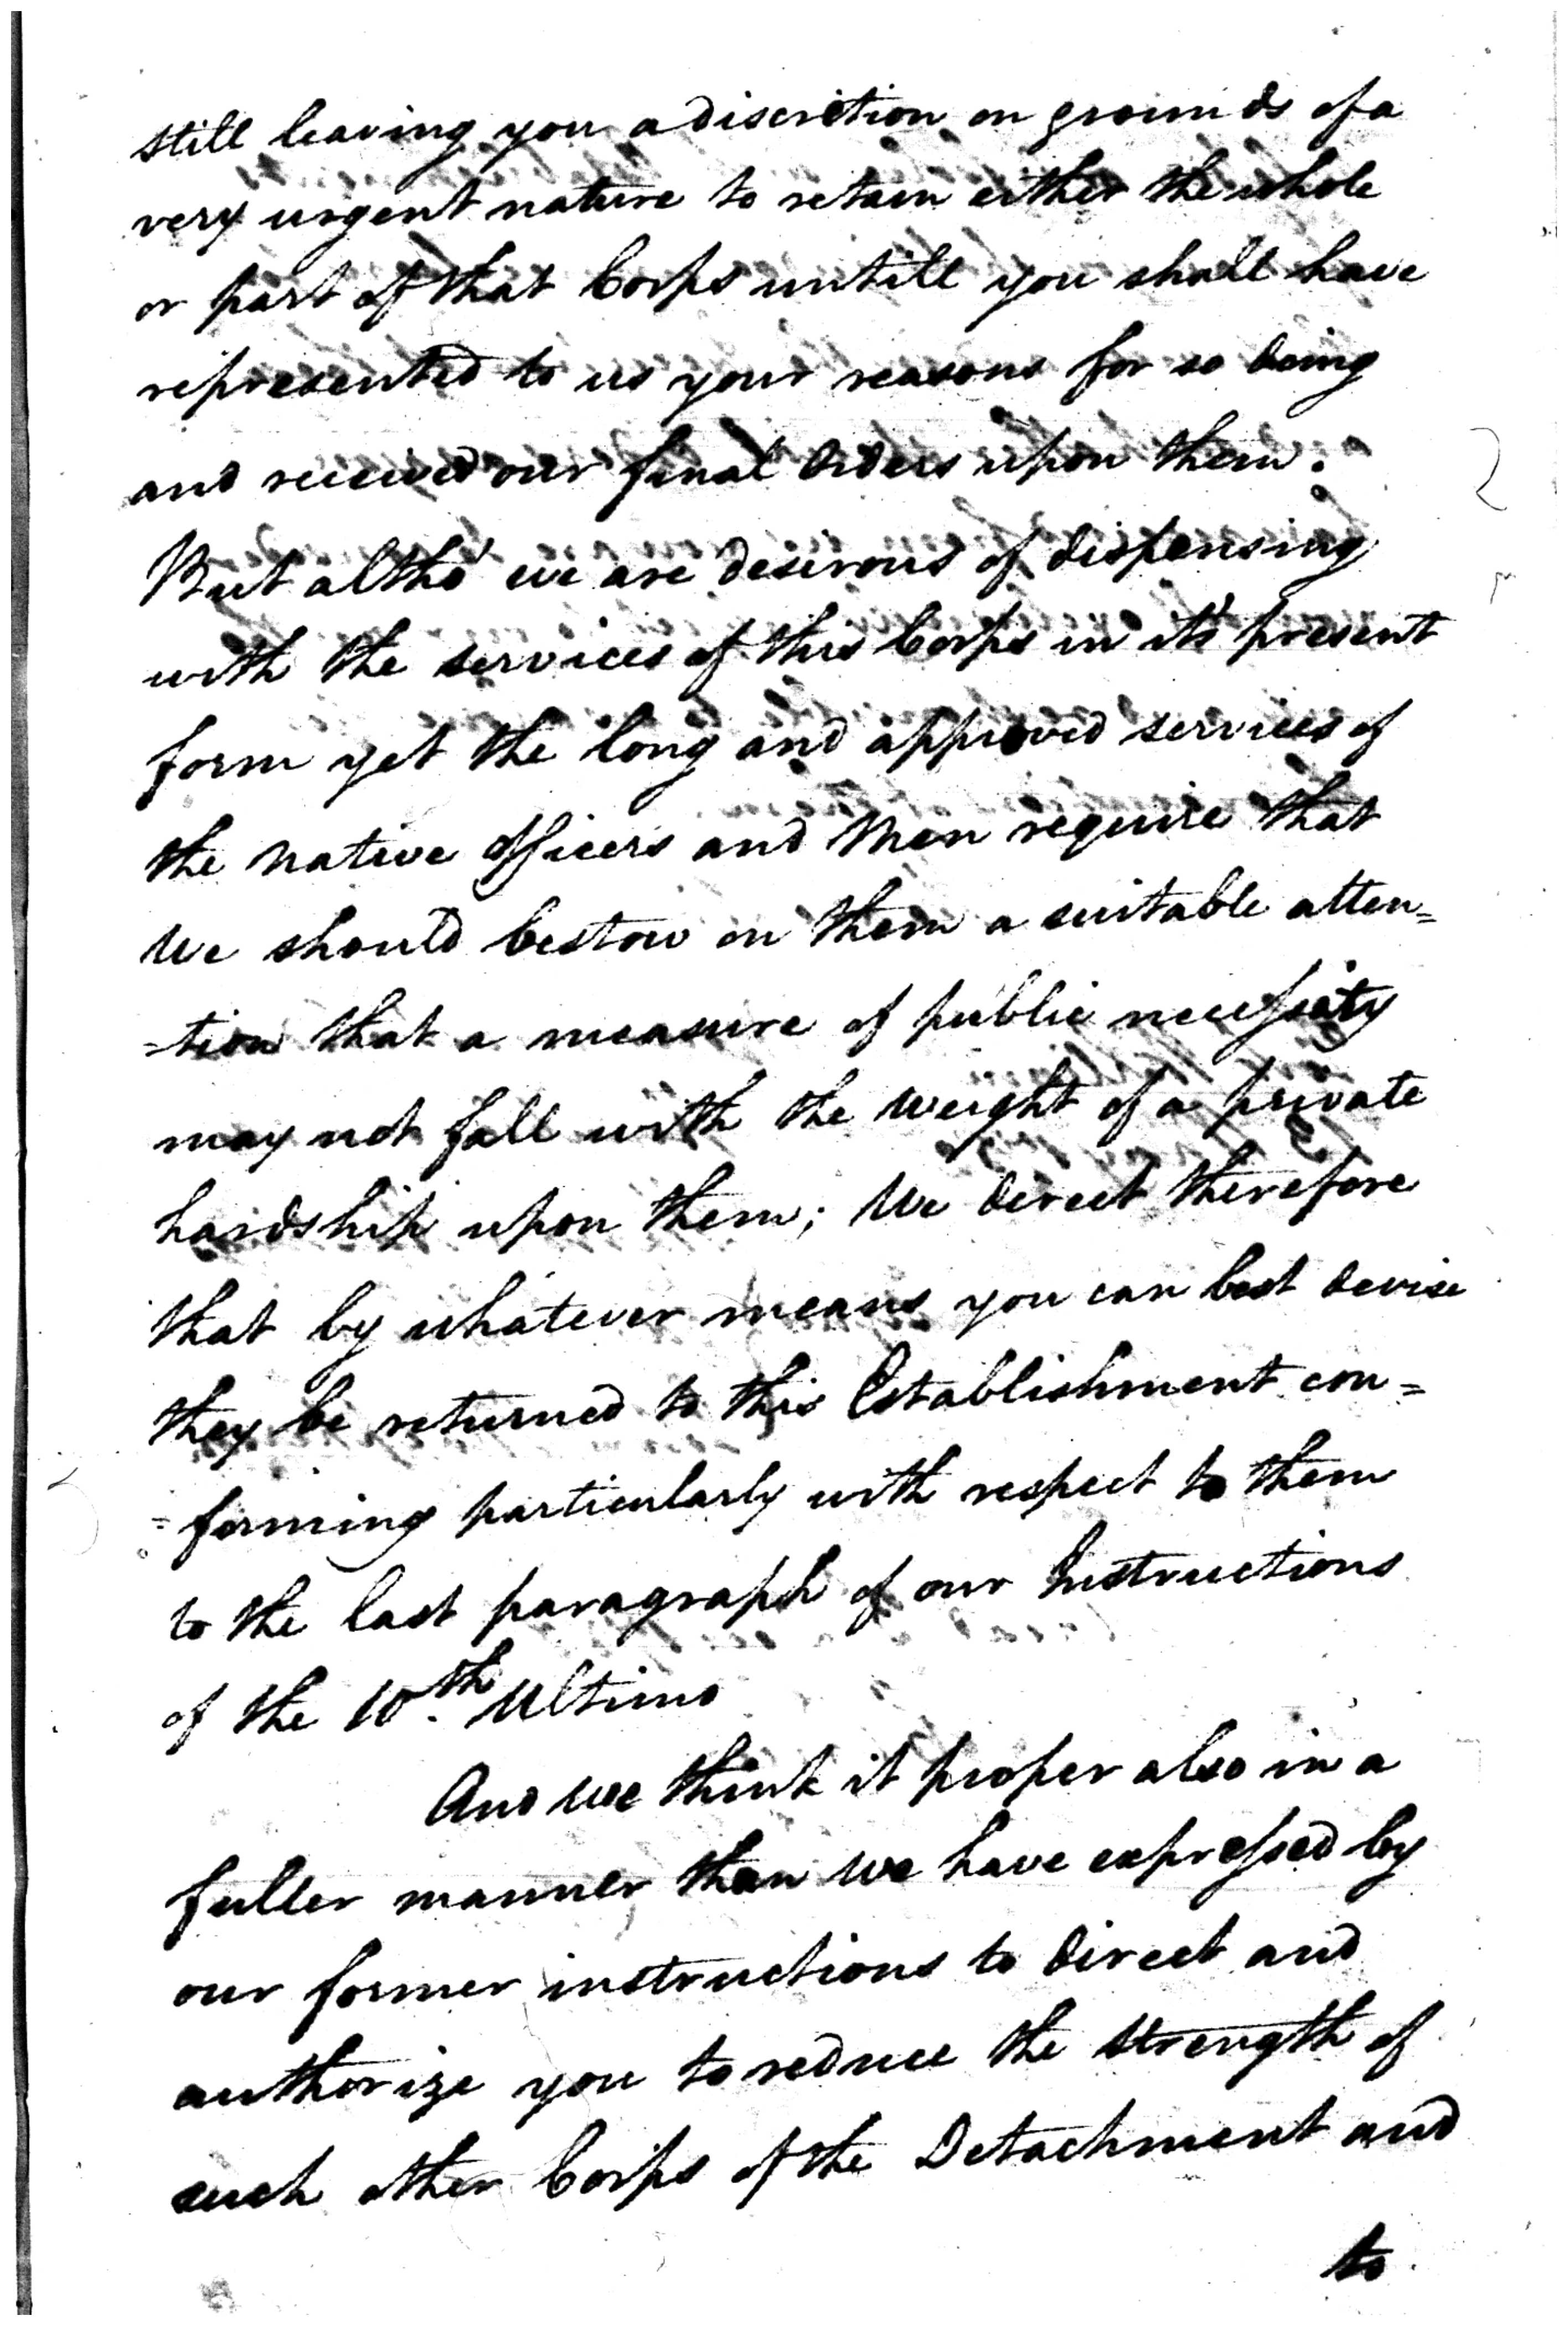 still leaving you a discretion on grounds of a
very urgent nature to retain either the whole
or part of that Corps untill you shall have
represented to us your reasons for so doing
and received our final Orders upon them.
But altho' we are desirous of dispensing
with the services of this Corps in it's present
form yet the long and approved services of
the native Officers and Men require that
We should bestow on them a suitable atten=
=tion that a measure of public necessity
may not fall with the weight of a private
hardship upon them; We direct therefore
that by whatever means you can best devise
they be returned to this Establishment con=
=forming particularly with respect to them
to the last paragraph of our Instructions
of the 10.th Ultimo
And we think it proper also in a
fuller manner than we have expressed by
our former instructions to direct and
authorize you to reduce the Strength of
such other Corps of the Detachment and
to